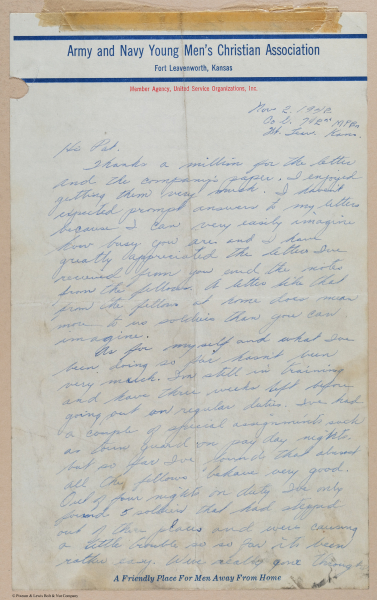 Army and Navy Young Men's Christian Association
Fort Leavenworth, Kansas
Member Agency, United Service Organizations, Inc.
Nov 2, 1942
Co D. MPBn
Ft Leav. Kans.
Hi Pat.
Thanks a million for the letter
and the company paper. I enjoyed
getting them very much. I haven't
expected prompt answers to my letters
because I can very easily imagine
how busy you are and I have
greatly appreciated the letters I've
received from you and the notes
from the fellows. A letter like that
from the fellows at home does mean
more to us soldiers than you can
imagine.
As for myself and what I've
been doing so far hasn't been
very much. I'm still in training
and have three weeks left before
going out on regular duties. I've had
a couple of special assignments such
as town guard on pay day nights.
but so far I've found that almost
all the fellows behave very good.
Out of four nights on duty I've only
found 2 soldiers that had slipped
out of their places and were causing
a little trouble so so far its been
rather easy. We've really gone through
A Friendly Place For Men Away From Home
© Putnam & Lewis Bolt & Nut Company